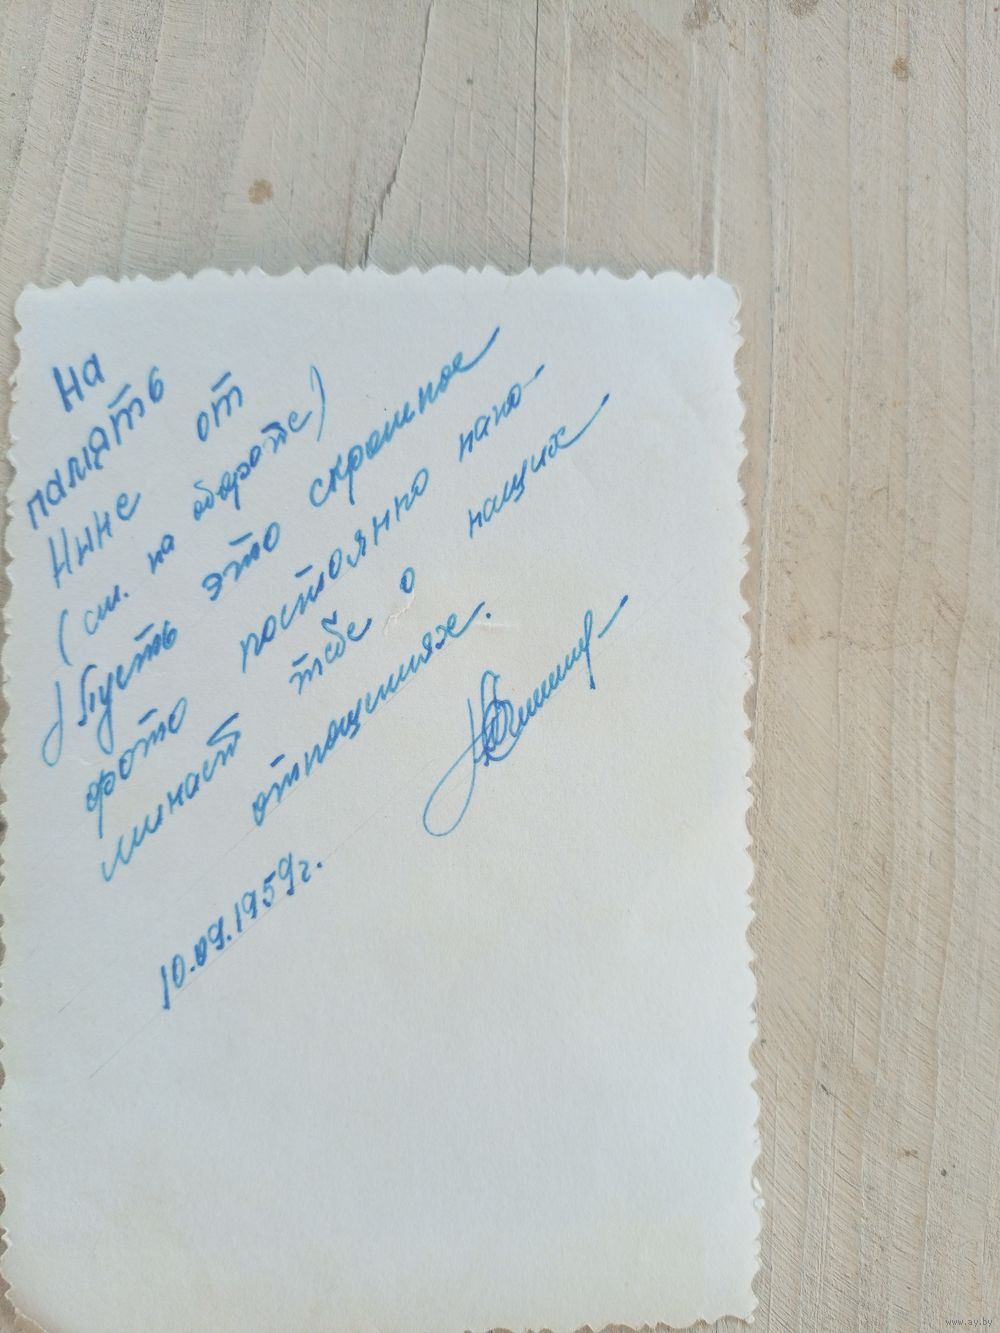 На
память
Нине от
(см. на обороте)
Пусть это скромное
фото постоянно напо-
минает тебе о наших
отношениях.
10.09.1959г.
www.ay.by